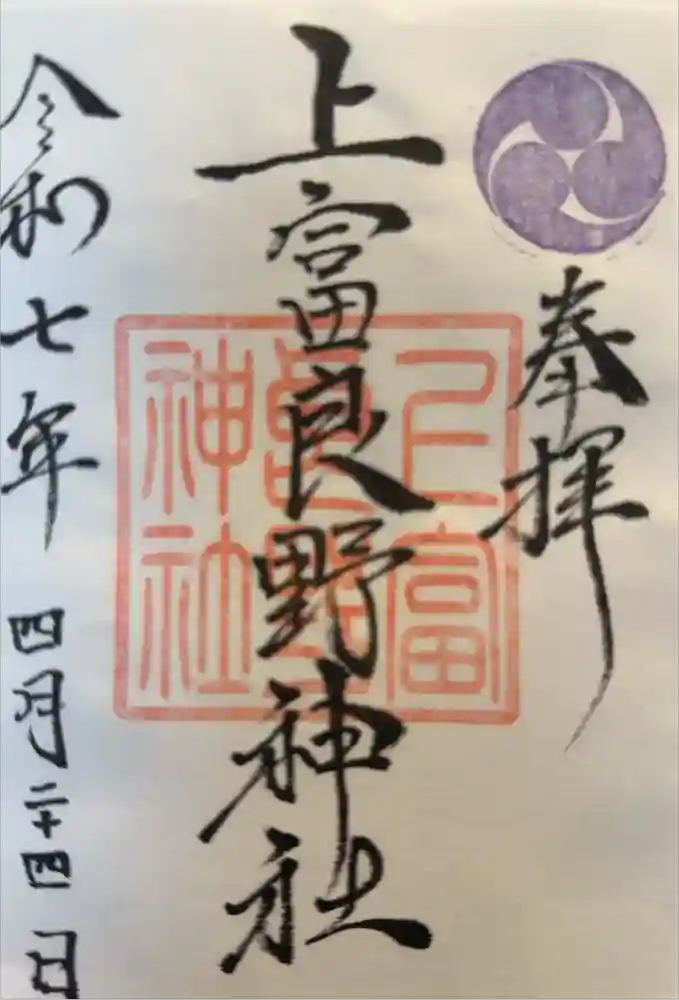 奉拝
上富良野神社
上富
良野
神社
令和七年 四月二十四日